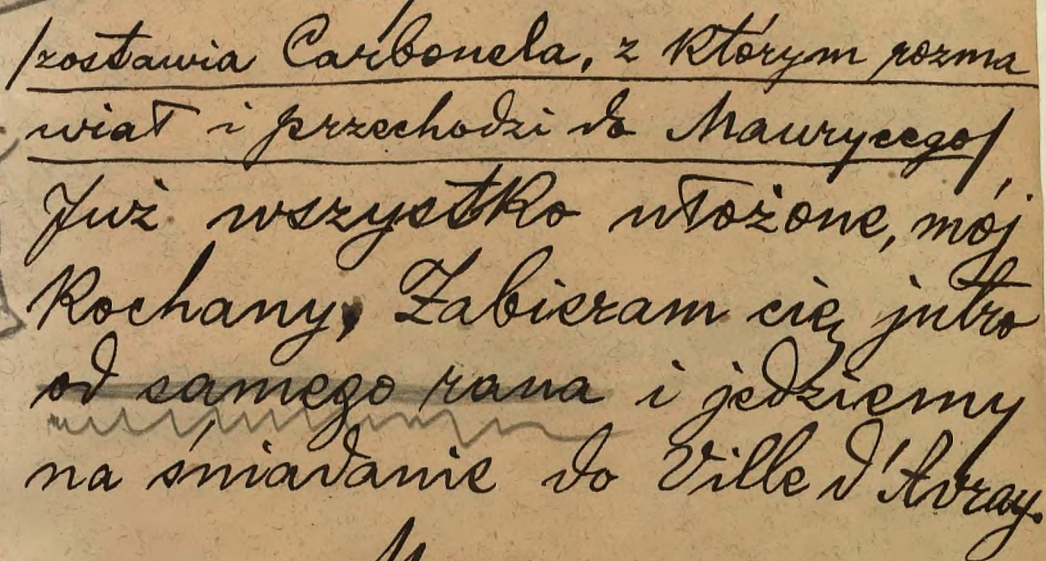 /zostawia Carbonela, z którym rozma
wiał i przechodzi do Maurycego/
Już wszystko ułożone, mój
kochany, Zabieram cię jutro
od samego rana i jedziemy
na śniadanie do Ville d'Avray.